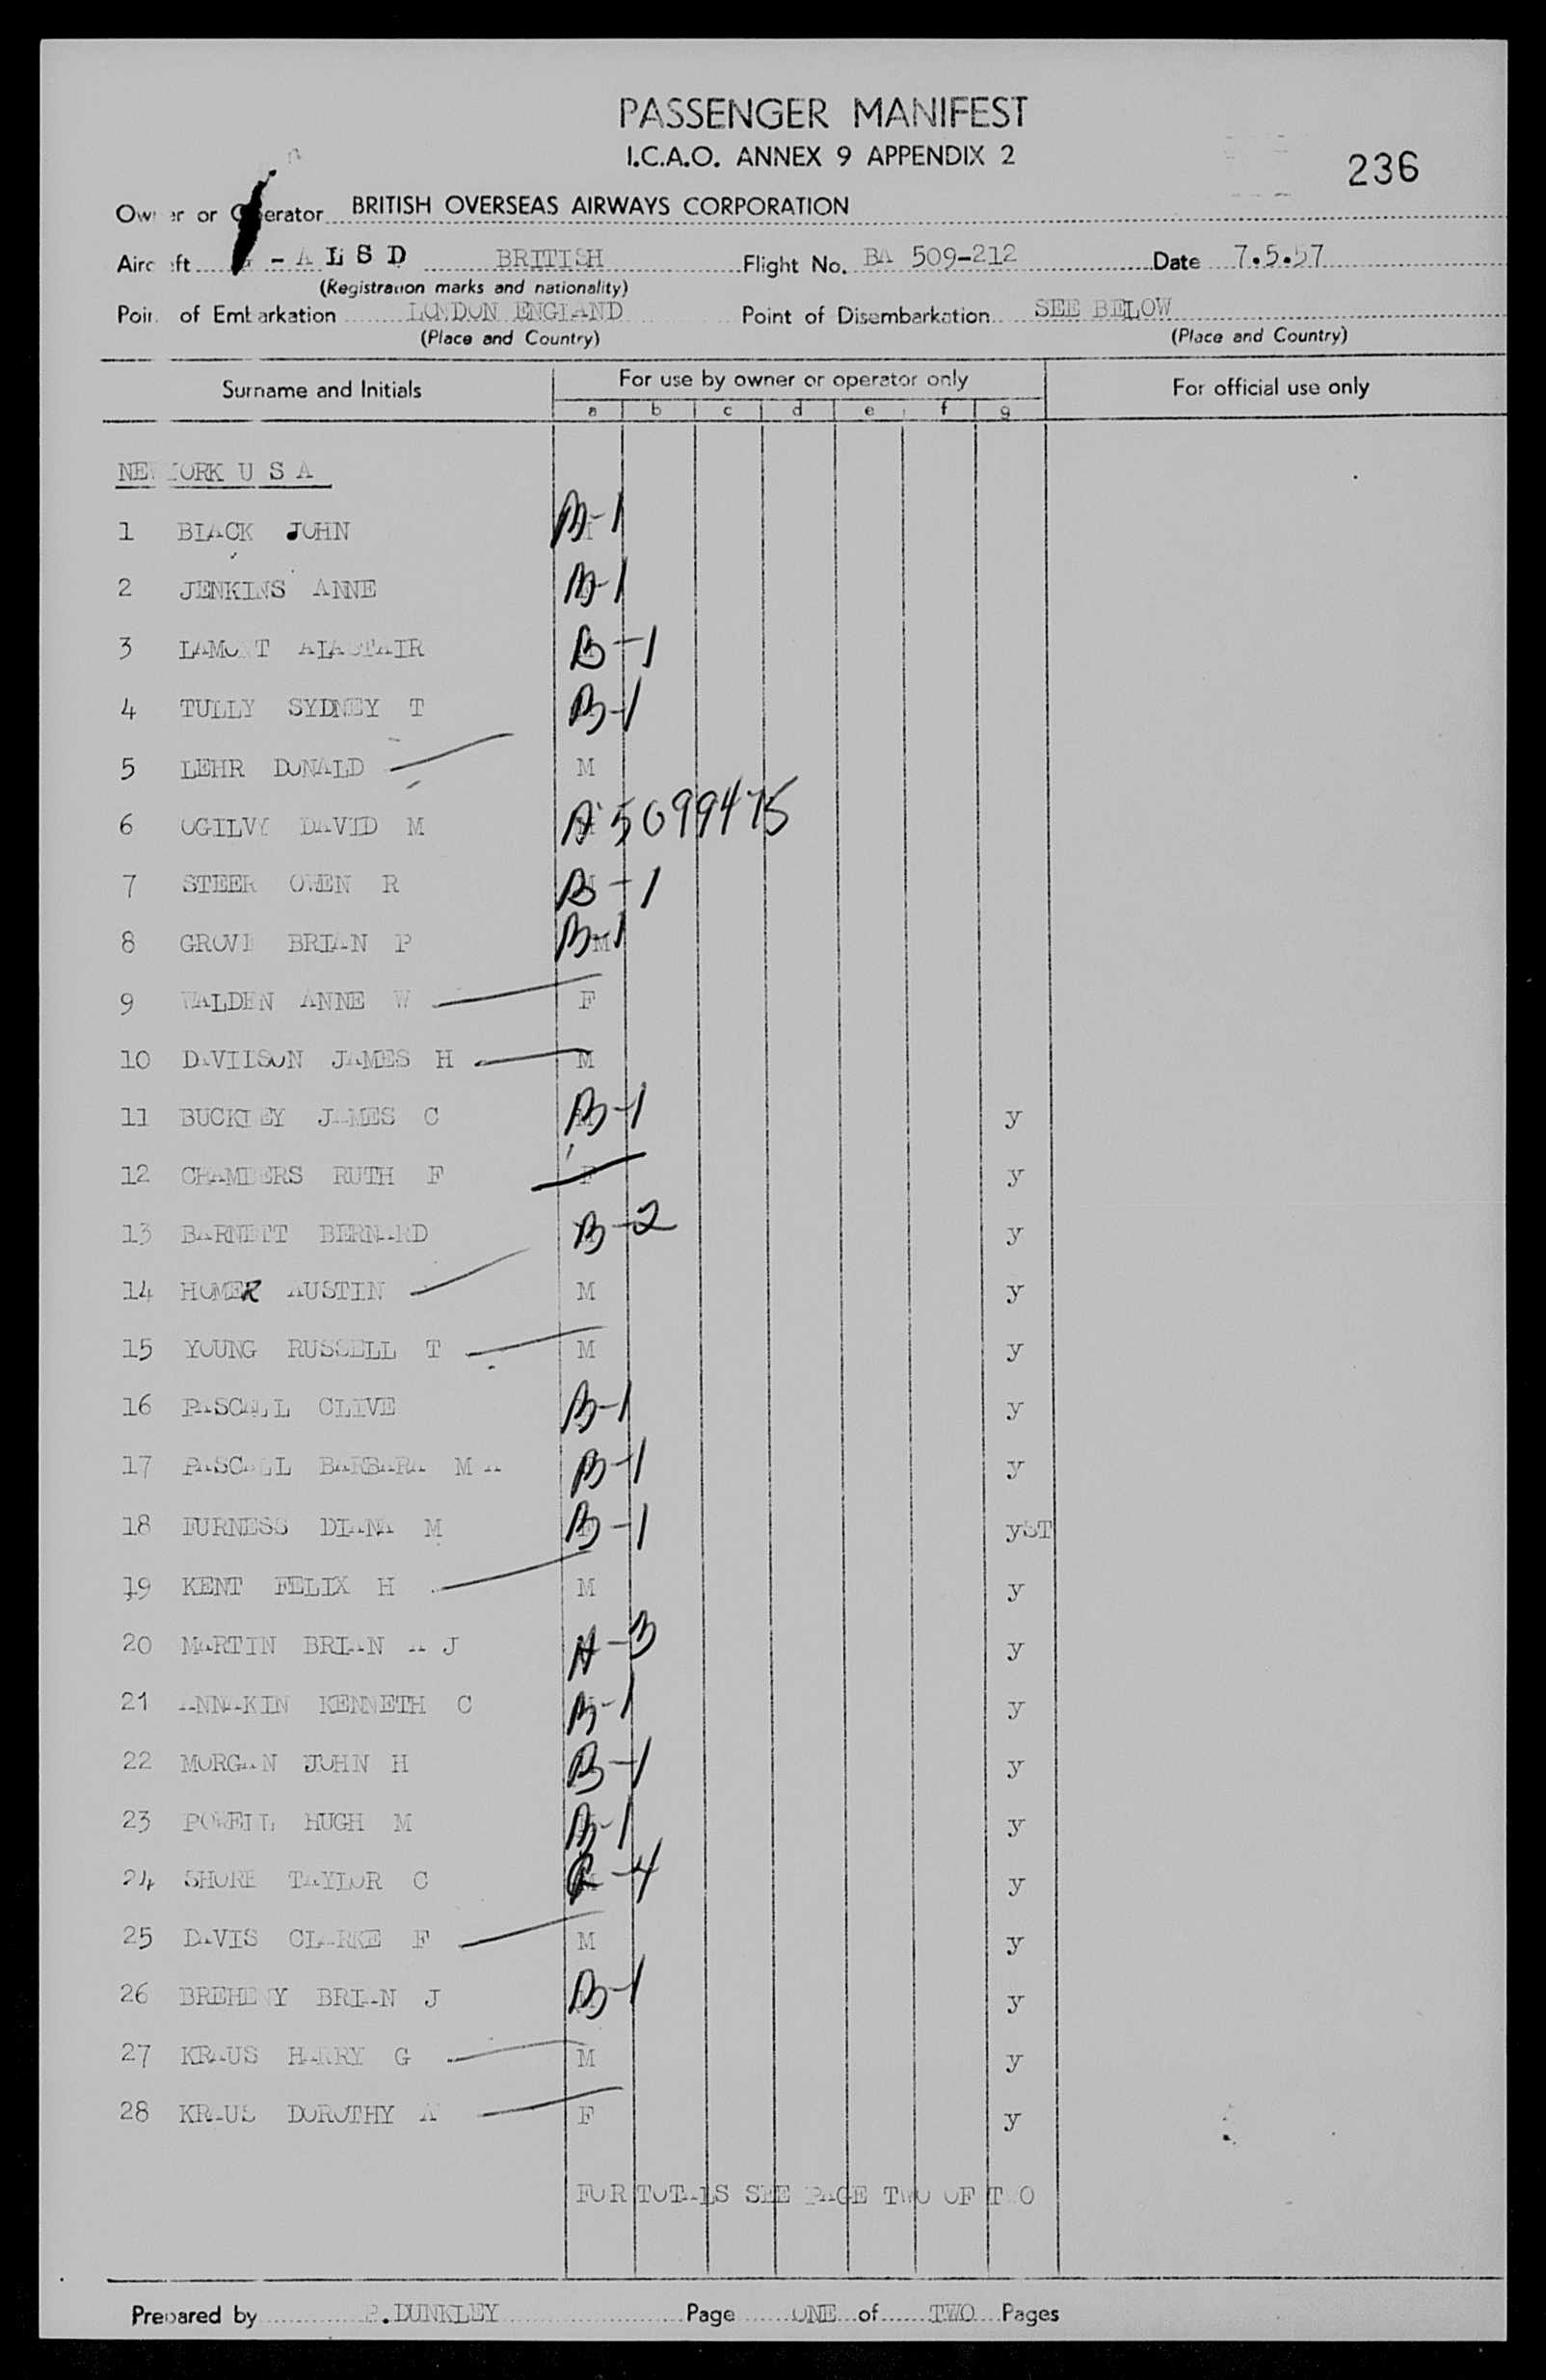 PASSENGER MANIFEST
I.C.A.O. ANNEX 9 APPENDIX 2
236
Owner or Operator BRITISH OVERSEAS AIRWAYS CORPORATION
Aircraft G - A L S D BRITISH Flight No. BA 509-212 Date 7.5.57
(Registration marks and nationality)
Point of Embarkation LONDON ENGLAND Point of Disembarkation SEE BELOW
(Place and Country) (Place and Country)
Surname and Initials For use by owner or operator only For official use only
a b c d e f g
NEW YORK U S A
1 BLACK JOHN B-1
2 JENKINS ANNE B-1
3 LAMONT ALASTAIR B-1
4 TULLY SYDNEY T B-1
5 LEHR DONALD M
6 OGILVY DAVID M A 5099475
7 STEER OWEN R B-1
8 GROVE BRIAN P B-1 M
9 WALDEN ANNE W F
10 DAVILSON JAMES H M
11 BUCKLEY JAMES C B-1 y
12 CHAMBERS RUTH F F y
13 BARNETT BERNARD B-2 y
14 HOMER AUSTIN M y
15 YOUNG RUSSELL T M y
16 PASCALL CLIVE B-1 y
17 PASCALL BARBARA M A B-1 y
18 FURNESS DIANA M B-1 yST
19 KENT FELIX H M y
20 MARTIN BRIAN A J A-3 y
21 ANNAKIN KENNETH C B-1 y
22 MORGAN JOHN H B-1 y
23 POWELL HUGH M B-1 y
24 SHORE TAYLOR C G-4 y
25 DAVIS CLARKE F M y
26 BREHENY BRIAN J B-1 y
27 KRAUS HARRY G M y
28 KRAUS DOROTHY A F y
FOR TOTALS SEE PAGE TWO OF TWO
Prepared by P. DUNKLEY Page ONE of TWO Pages